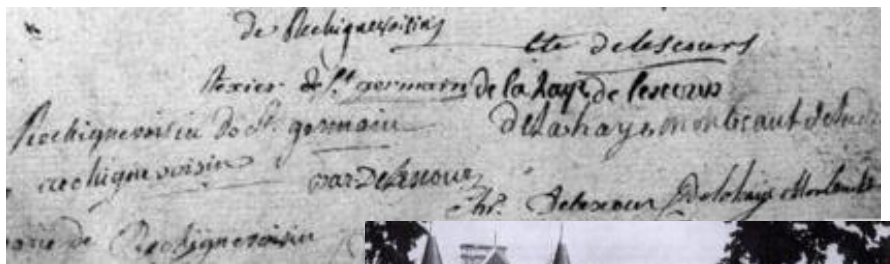 de Rechignevoisin
cte delescours
texier de st germain de la haye de lescours
Rechignevoisin de St germain
delahaye montbeaut
rechignevoisin
delescours
chr. Delescour Delahaye Monbaut
marie de Rechignevoisin